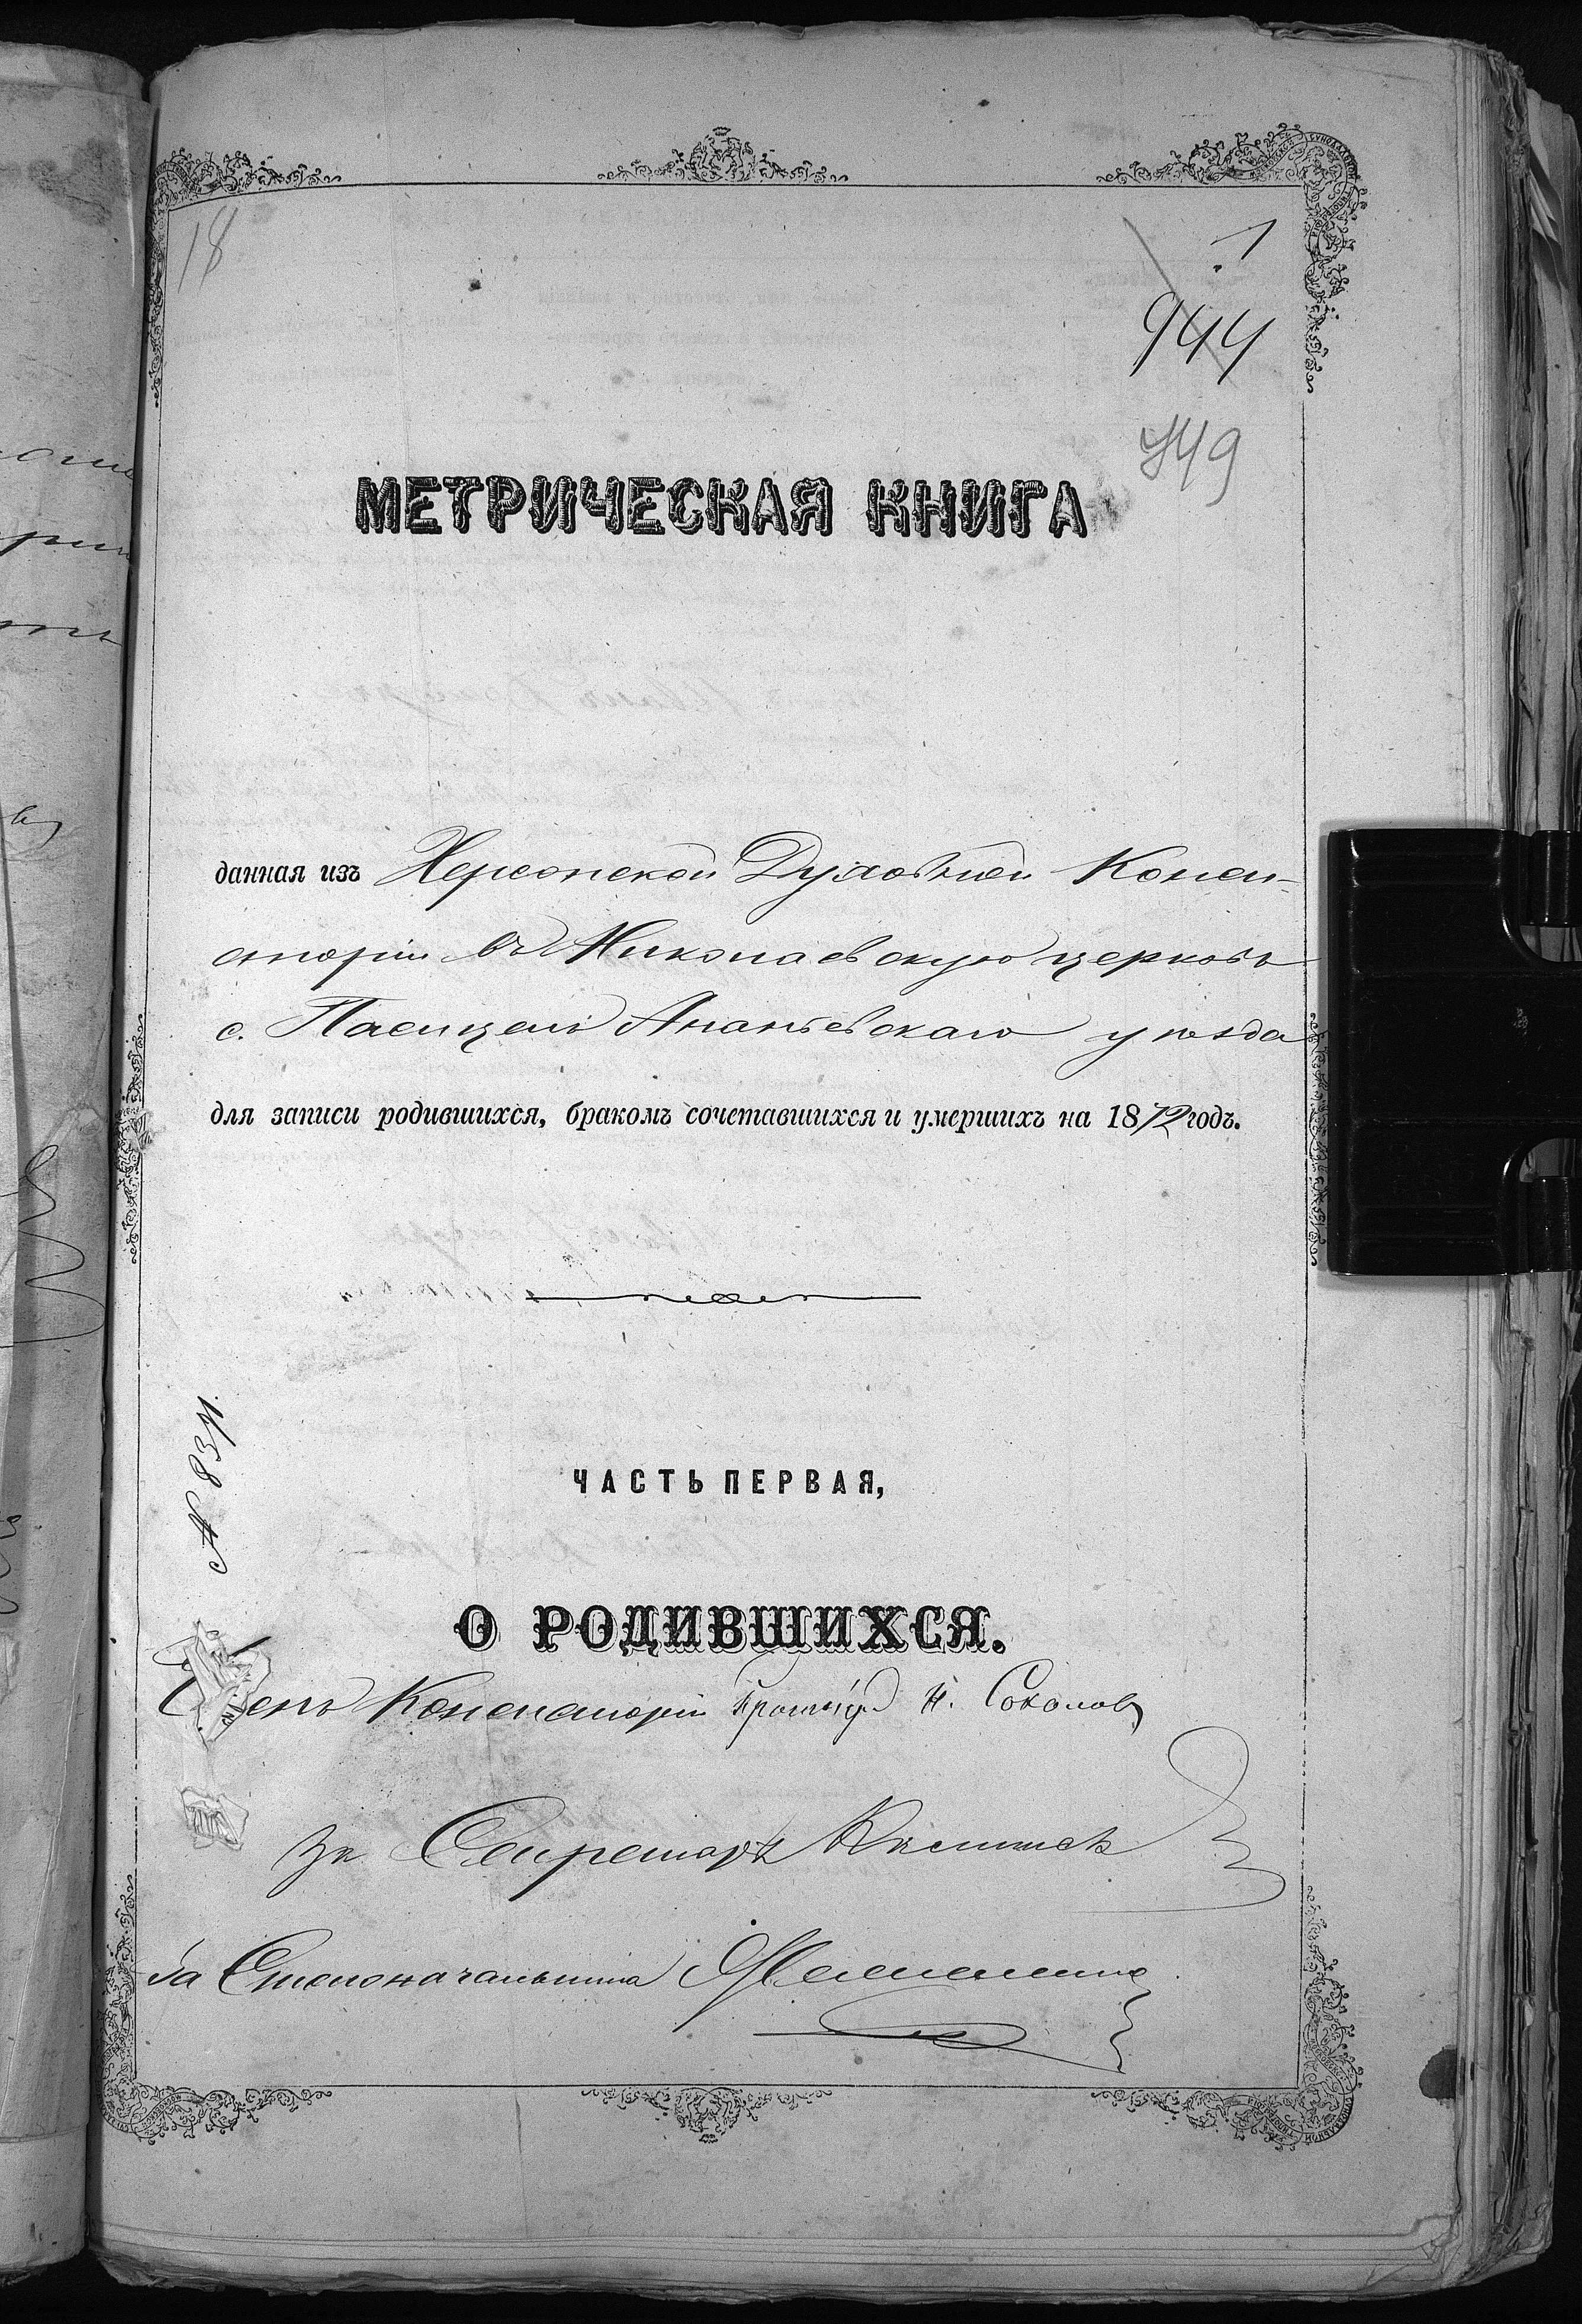 18
1
944
749
МЕТРИЧЕСКАЯ КНИГА
данная изъ Херсонской Духовной Конси-
сторіи въ Николаевскую церковь
с. Пасицелъ Ананьевскаго уѣзда
для записи родившихся, бракомъ сочетавшихся и умершихъ на 1872 годъ.
ЧАСТЬ ПЕРВАЯ,
О РОДИВШИХСЯ.
Членъ Консисторіи Протоіерей Н. Соколовъ
За Секретаря
За Столоначальника